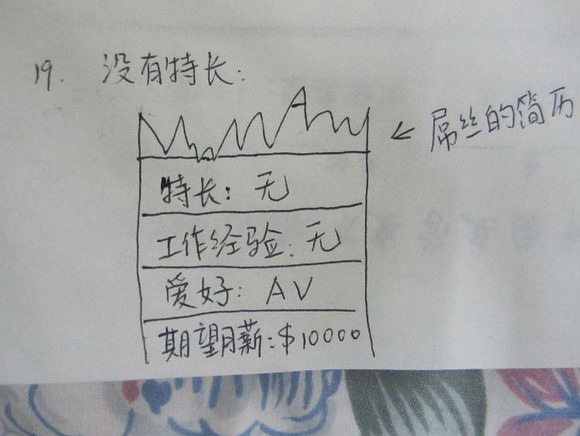 19. 没有特长:
← 屌丝的简历
特长: 无
工作经验: 无
爱好: AV
期望月薪: $10000